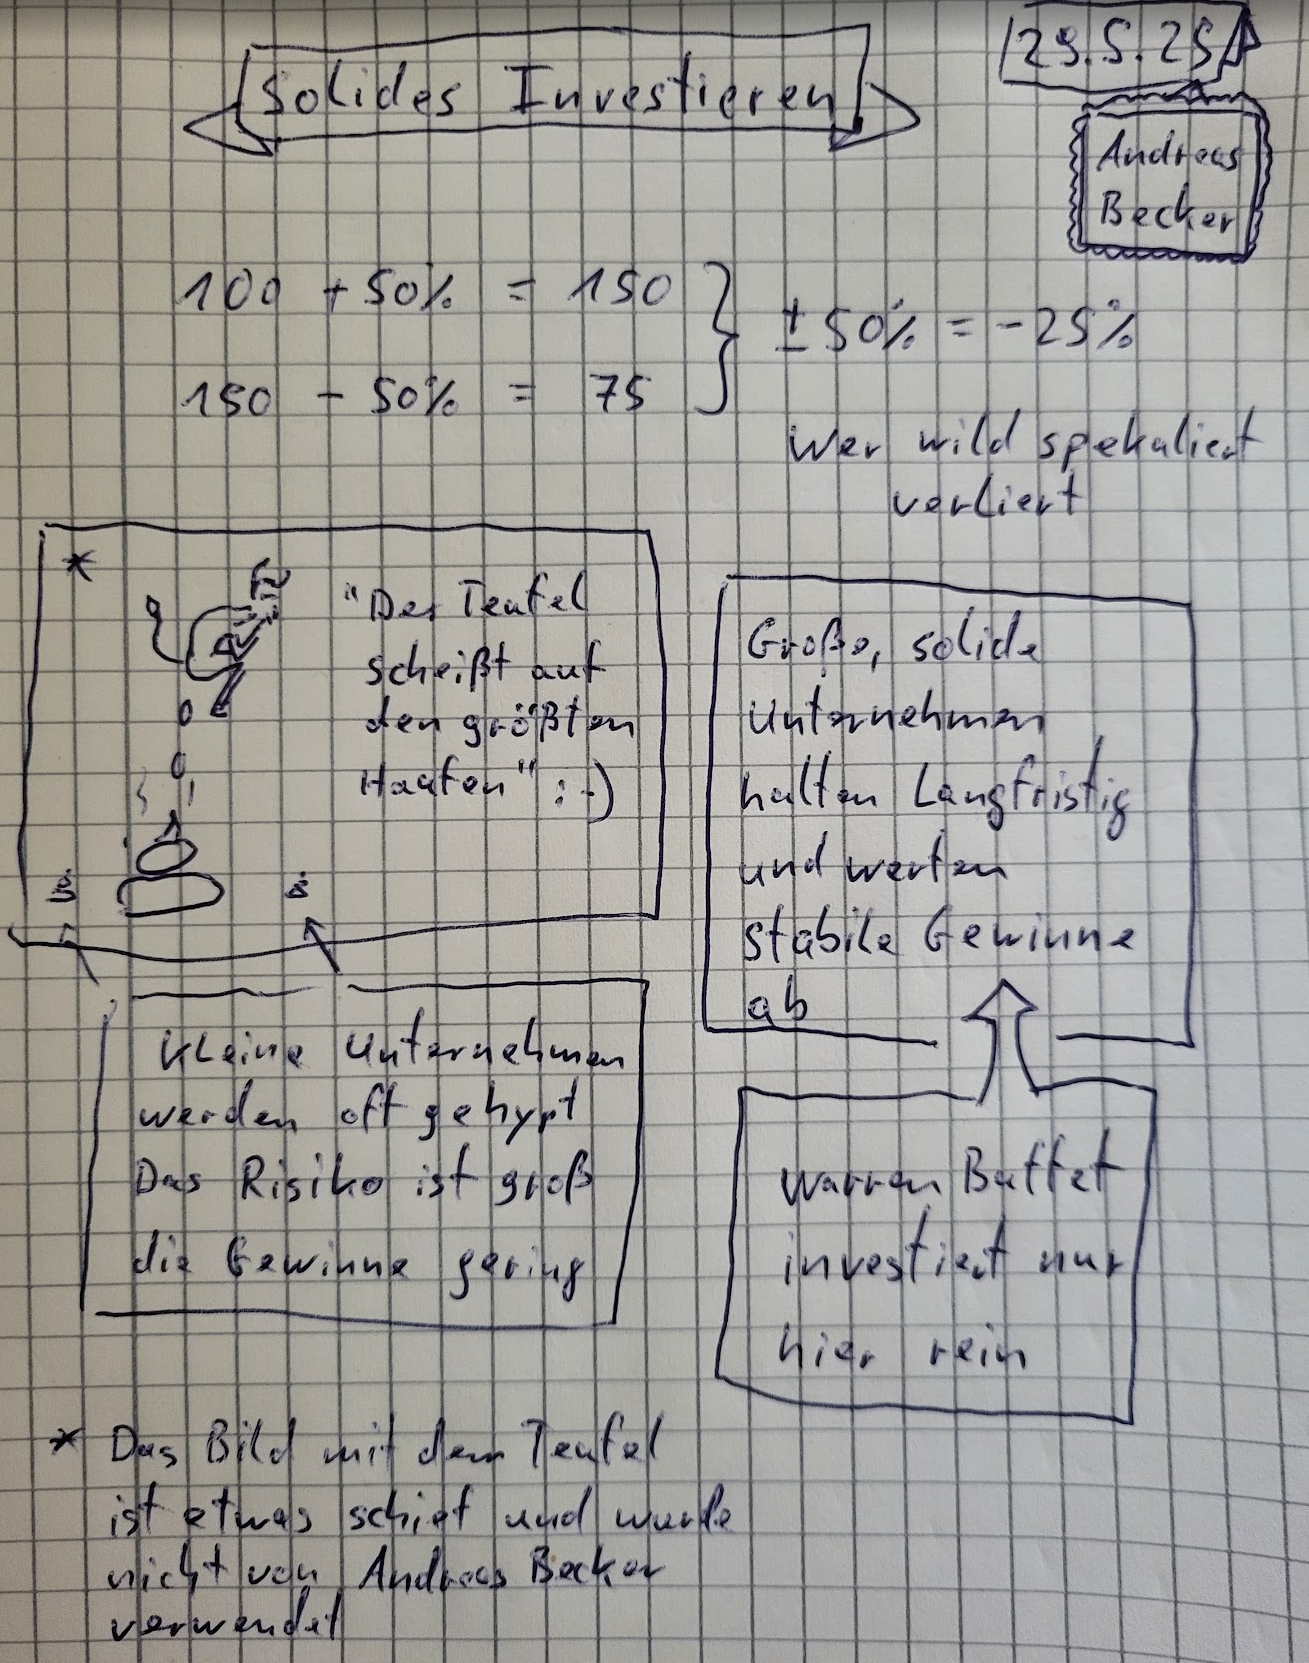 Solides Investieren
29.5.25
Andreas
Becker
100 + 50% = 150
150 - 50% = 75
± 50% = -25%
Wer wild spekuliert
verliert
*
"Der Teufel
scheißt auf
den größten
Haufen" :-)
Große, solide
Unternehmen
halten Langfristig
und werfen
stabile Gewinne
ab
Kleine Unternehmen
werden oft gehypt
Das Risiko ist groß
die Gewinne gering
Warren Buffet
investiert nur
hier rein
* Das Bild mit dem Teufel
ist etwas schief und wurde
nicht von Andreas Becker
verwendet